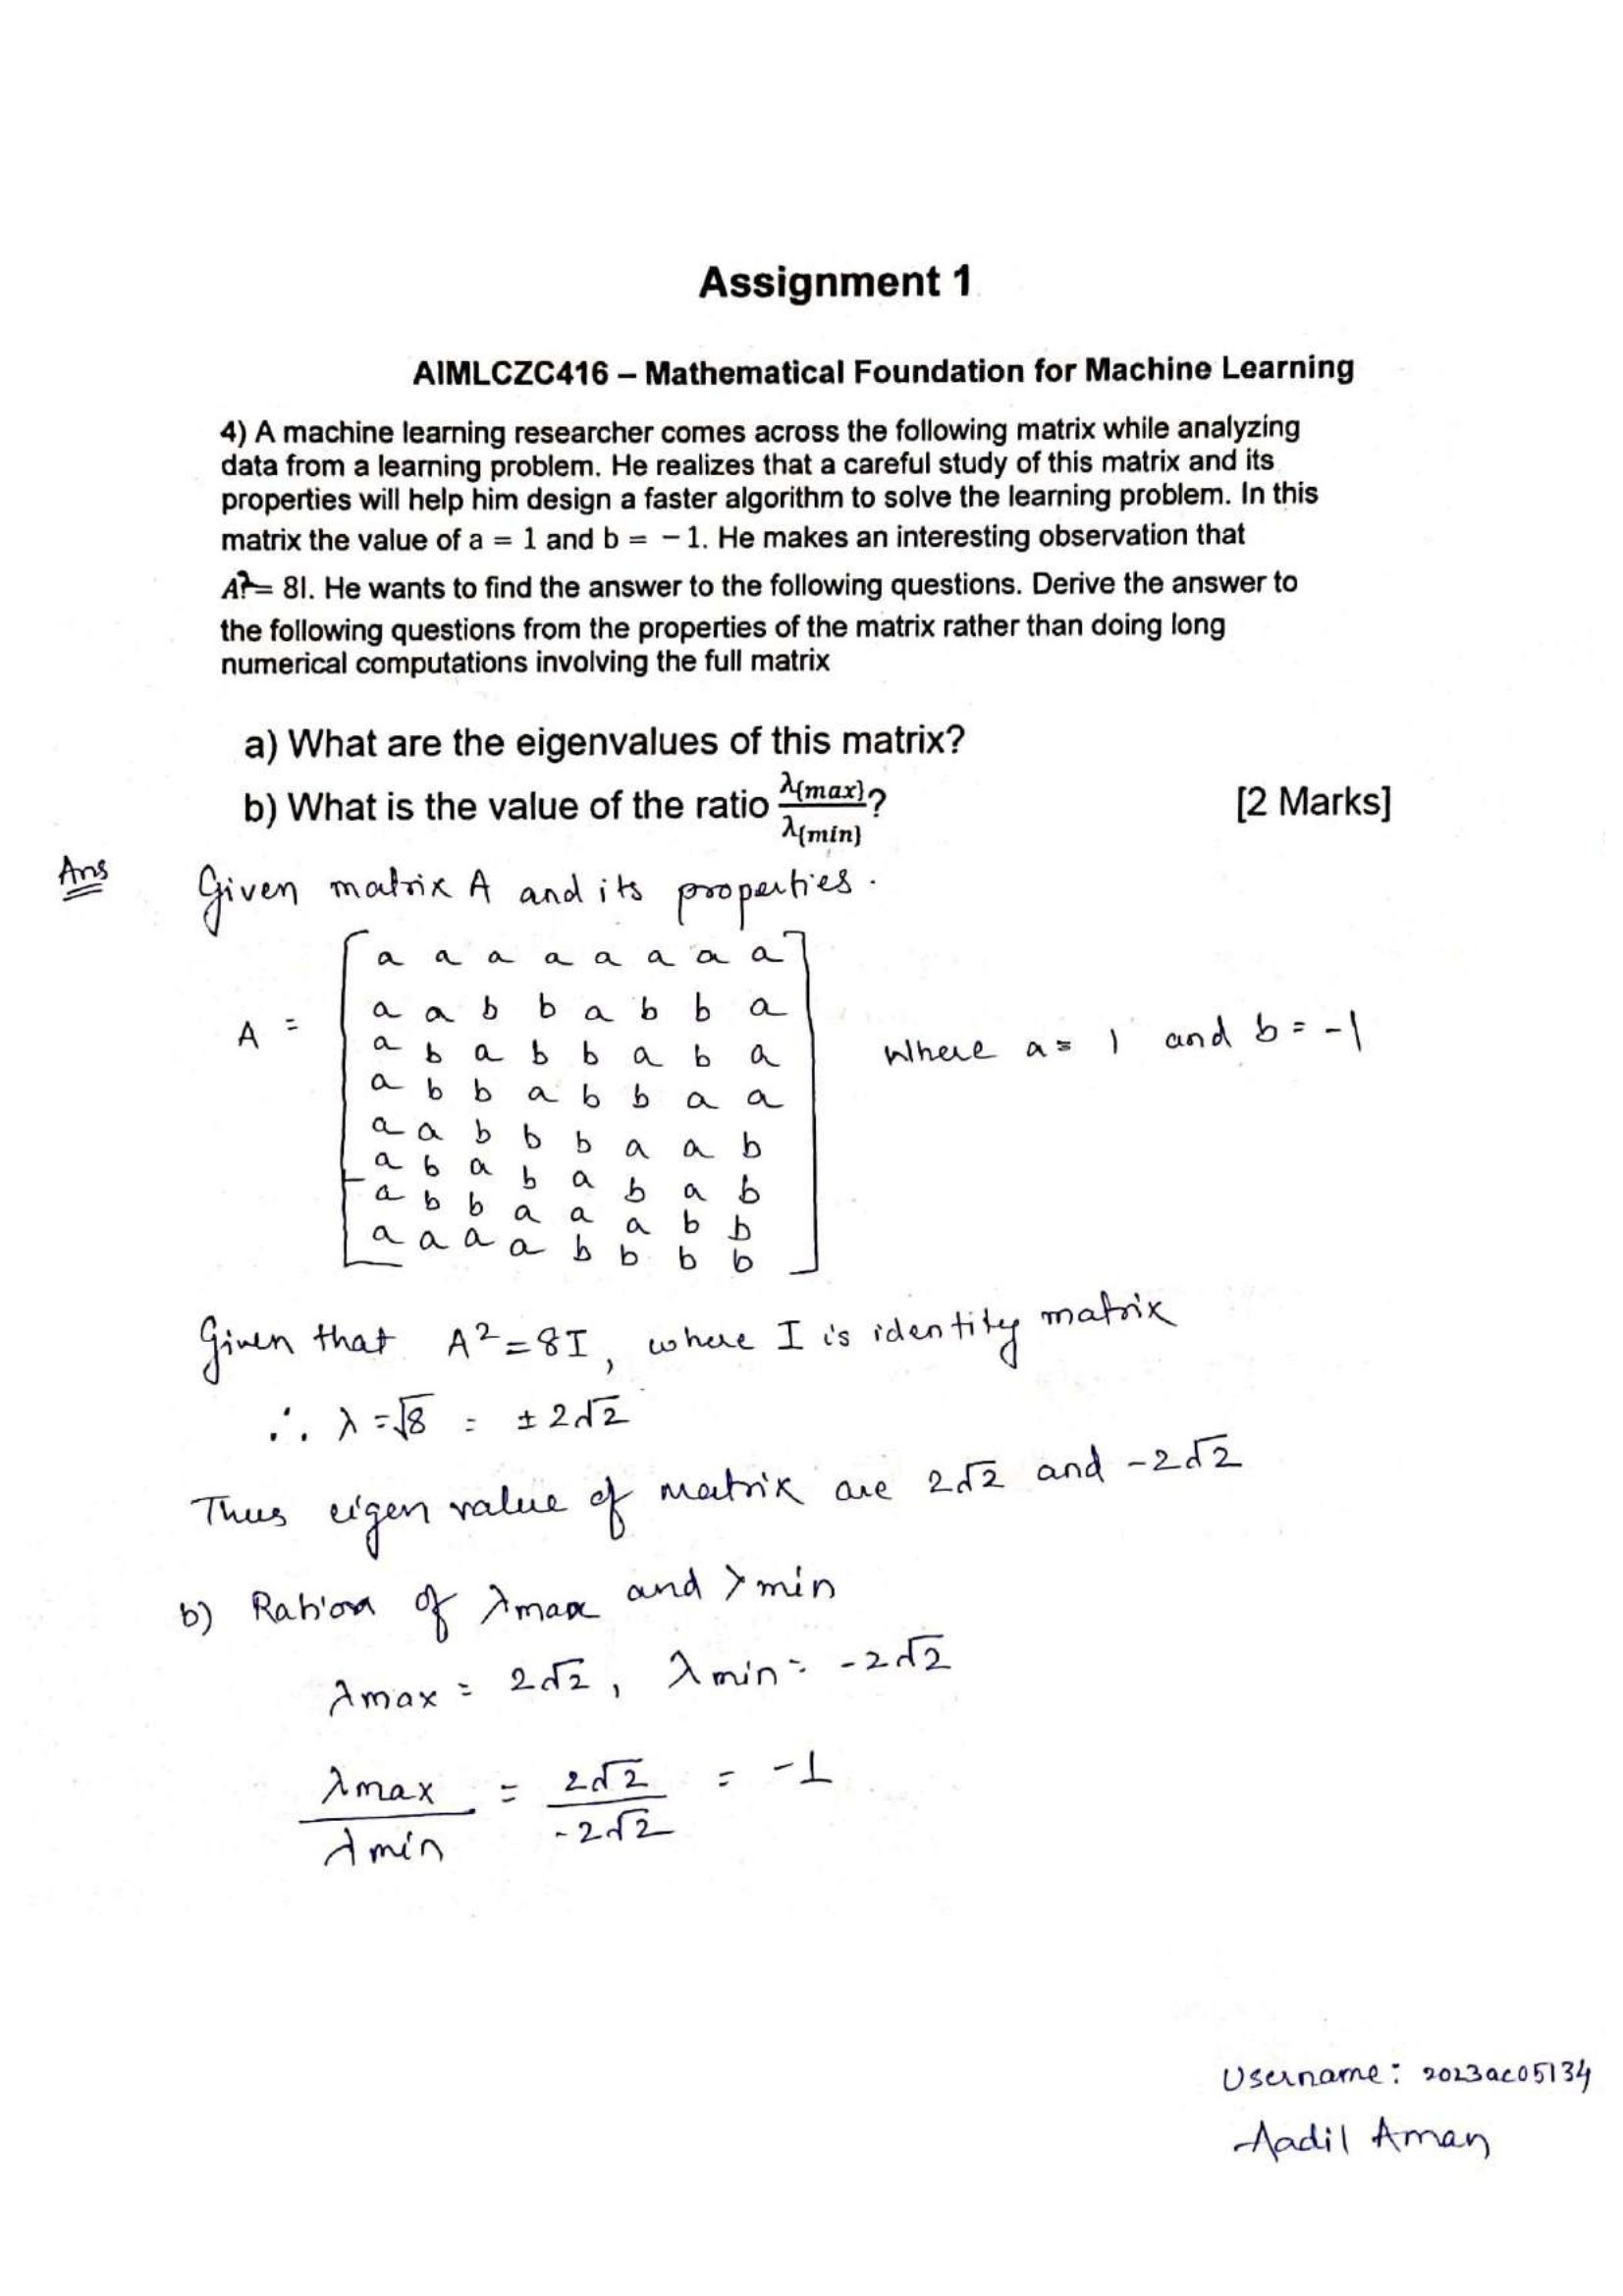 Assignment 1
AIMLCZC416 – Mathematical Foundation for Machine Learning
4) A machine learning researcher comes across the following matrix while analyzing
data from a learning problem. He realizes that a careful study of this matrix and its
properties will help him design a faster algorithm to solve the learning problem. In this
matrix the value of a = 1 and b = − 1. He makes an interesting observation that
A²= 8I. He wants to find the answer to the following questions. Derive the answer to
the following questions from the properties of the matrix rather than doing long
numerical computations involving the full matrix
a) What are the eigenvalues of this matrix?
b) What is the value of the ratio λ{max}/λ{min}? [2 Marks]
Ans
Given matrix A and its properties.
a a a a a a a a
a a b b a b b a
A = where a = 1 and b = -1
a b a b b a b a
a b b a b b a a
a a b b b a a b
a b a b a b a b
a b b a a a b b
a a a a b b b b
Given that A² = 8I, where I is identity matrix
∴ λ = √8 = ± 2√2
Thus eigen value of matrix are 2√2 and -2√2
b) Ration of λmax and λmin
λmax = 2√2, λmin = -2√2
λmax/λmin = 2√2/-2√2 = -1
Username: 2023ac05134
Aadil Aman